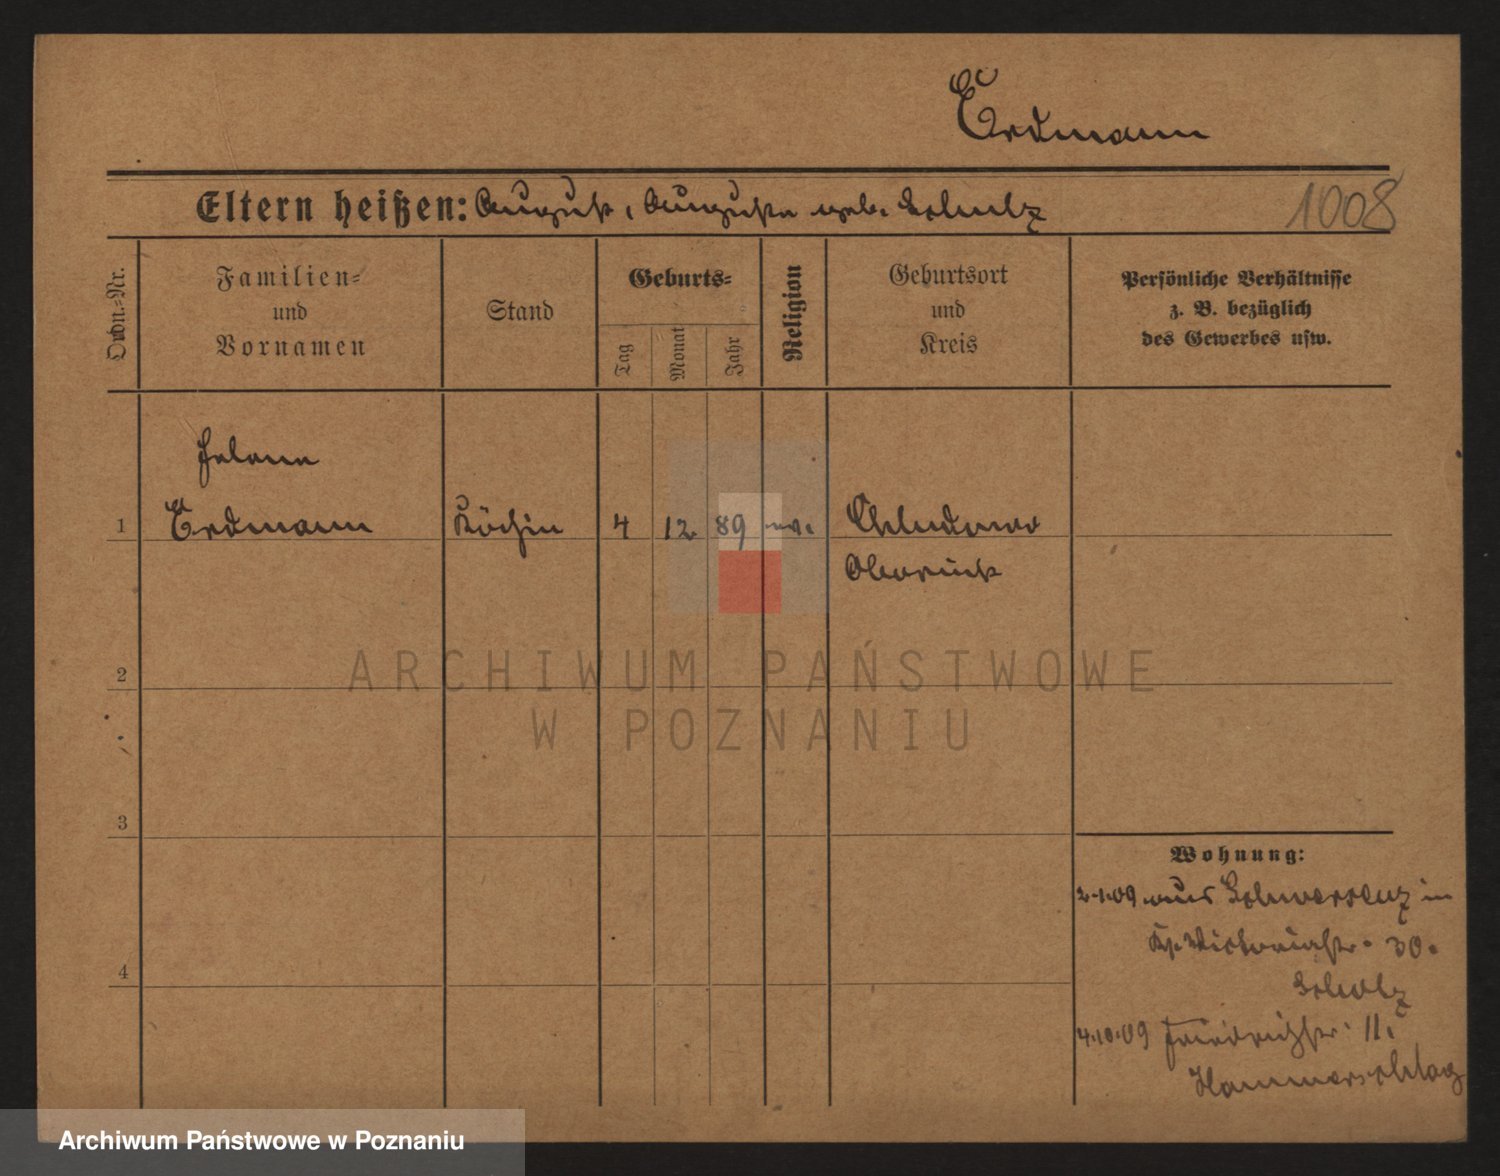 Erdmann
Eltern heißen: August, Augusta geb. Schulz
1008
Ordn.-Nr.
Familien-
und
Vornamen
Stand
Geburts-
Tag
Monat
Jahr
Religion
Geburtsort
und
Kreis
Persönliche Verhältnisse
z. B. bezüglich
des Gewerbes usw.
Helene
1 Erdmann Köchin 4 12. 89 ev. Chludowo
Obornik
2
3
4
ARCHIWUM PAŃSTWOWE
W POZNANIU
Wohnung:
2.1.09 aus Schwersenz in
Victoriastr. 30.
Scholz
4.10.09 Friedrichstr. 11.
Hammerschlag
Archiwum Państwowe w Poznaniu